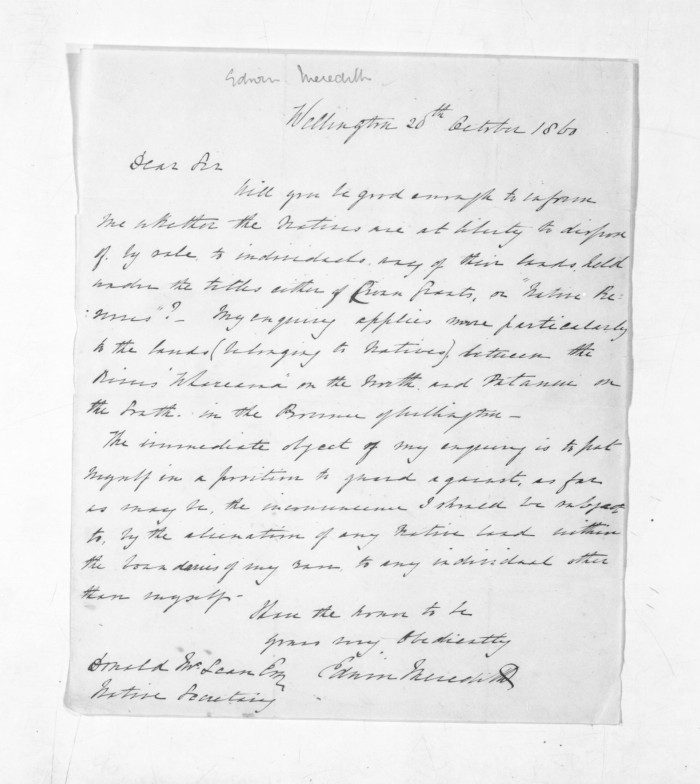 Edwin Meredith
Wellington 20th October 1860
Dear Sir
Will you be good enough to inform
me whether the Natives are at liberty to dispose
of, by sale, to individuals any of their lands held
under the titles either of Crown Grants, or "Native Re-
:serves"? - My enquiry applies more particularly
to the lands (belonging to Natives) between the
Rivers Whareama on the North and Patanui on
the South. in the Province of Wellington -
The immediate object of my enquiry is to put
myself in a position to guard against, as far
as may be, the inconvenience I should be subject
to, by the alienation of any Native land within
the boundaries of my run to any individual other
than myself -
Have the honor to be
yours very Obediently
Donald McLean Esq Edwin Meredith
Native Secretary